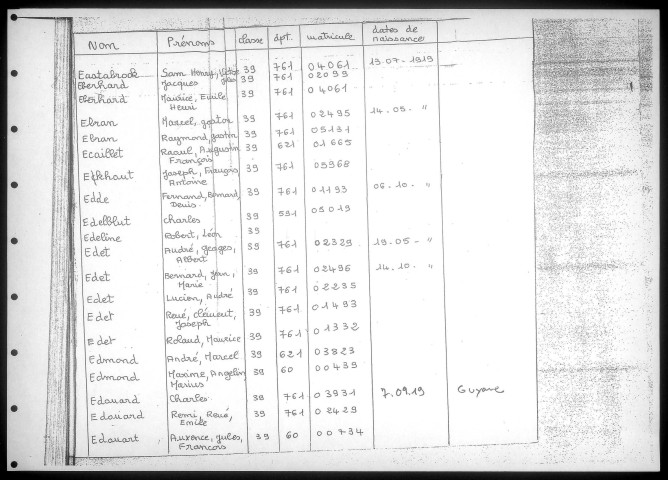 Nom Prénoms classe dpt. matricule dates de naissance
Eastabrook Sam Henry, Victor 39 761 04061 19-07-1919
Eberhard Jacques Jules 39 761 02099
Eberhard Maurice, Emile, 39 761 04061
Henri
Ebran Marcel, gaston 39 761 02495 14-05- "
Ebran Raymond, gastin 39 761 05131
Ecaillet Raoul, Augustin 39 621 01665
François
Joseph, François, 39 761 05968
Antoine
Edde Fernand, Bernard, 39 761 01193 06-10- "
Denis
Edelblut Charles 39 591 05019
Edeline Robert, Léon 39
Edet André, georges, 39 761 02329 19-05- "
Albert
Edet Bernard, Jean, 39 761 02496 14-10- "
Marie
Edet Lucien, André 39 761 02235
Edet René, clément, 39 761 01493
Joseph
Edet Roland, Maurice 39 761 01332
Edmond André, Marcel 39 621 03823
Edmond Maxime, Angelin, 39 60 00439
Marius
Edouard Charles 39 761 03931 7.09.19 Guyane
Edouard Remi, René, 39 761 02429
Emile
Edouart Auxence, Jules, 39 60 00734
François